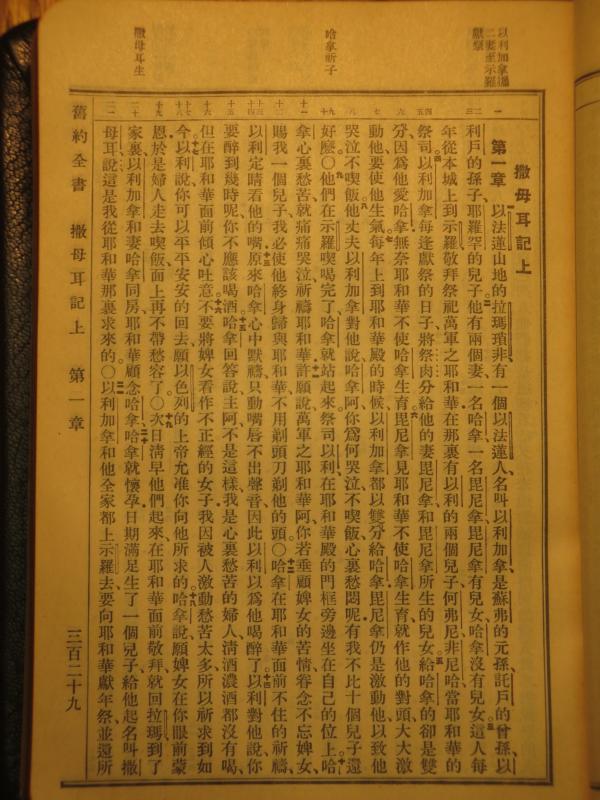 以利加拿攜
二妻至示羅
獻祭
哈拿祈子
撒母耳生
撒母耳記上
第一章 以法蓮山地的拉瑪瑣非有一個以法蓮人名叫以利加拿、是蘇弗的元孫、託戶的曾孫、以
利戶的孫子、耶羅罕的兒子。他有兩個妻、一名哈拿、一名毘尼拿、毘尼拿有兒女、哈拿沒有兒女。這人每
年從本城上到示羅敬拜祭祀萬軍之耶和華。在那裏有以利的兩個兒子何弗尼非尼哈當耶和華的
祭司。以利加拿每逢獻祭的日子、將祭肉分給他的妻毘尼拿和毘尼拿所生的兒女。給哈拿的卻是雙
分、因爲他愛哈拿、無奈耶和華不使哈拿生育。毘尼拿見耶和華不使哈拿生育、就作他的對頭、大大激
動他、要使他生氣。每年上到耶和華殿的時候、以利加拿都以雙分給哈拿、毘尼拿仍是激動他、以致他
哭泣不喫飯。他丈夫以利加拿對他說、哈拿阿、你爲何哭泣、不喫飯、心裏愁悶呢、有我不比十個兒子還
好麼。〇他們在示羅喫喝完了、哈拿就站起來。祭司以利在耶和華殿的門框旁邊、坐在自己的位上。哈
拿心裏愁苦、就痛痛哭泣祈禱耶和華、許願說、萬軍之耶和華阿、你若垂顧婢女的苦情、眷念不忘婢女、
賜我一個兒子、我必使他終身歸與耶和華、不用剃頭刀剃他的頭。〇哈拿在耶和華面前不住的祈禱、
以利定睛看他的嘴。原來哈拿心中默禱、只動嘴唇、不出聲音、因此以利以爲他喝醉了。以利對他說、你
要醉到幾時呢、你不應該喝酒。哈拿回答說、主阿、不是這樣、我是心裏愁苦的婦人、清酒濃酒都沒有喝、
但在耶和華面前傾心吐意。不要將婢女看作不正經的女子、我因被人激動、愁苦太多、所以祈求到如
今。以利說、你可以平平安安的回去、願以色列的上帝允准你向他所求的。哈拿說、願婢女在你眼前蒙
恩。於是婦人走去喫飯、面上再不帶愁容了。〇次日淸早、他們起來、在耶和華面前敬拜、就回拉瑪到了
家裏。以利加拿和妻哈拿同房、耶和華顧念哈拿。哈拿就懷孕、日期滿足、生了一個兒子、給他起名叫撒
母耳、說、這是我從耶和華那裏求來的。〇以利加拿和他全家都上示羅去、要向耶和華獻年祭、並還所
舊約全書 撒母耳記上 第一章 三百二十九